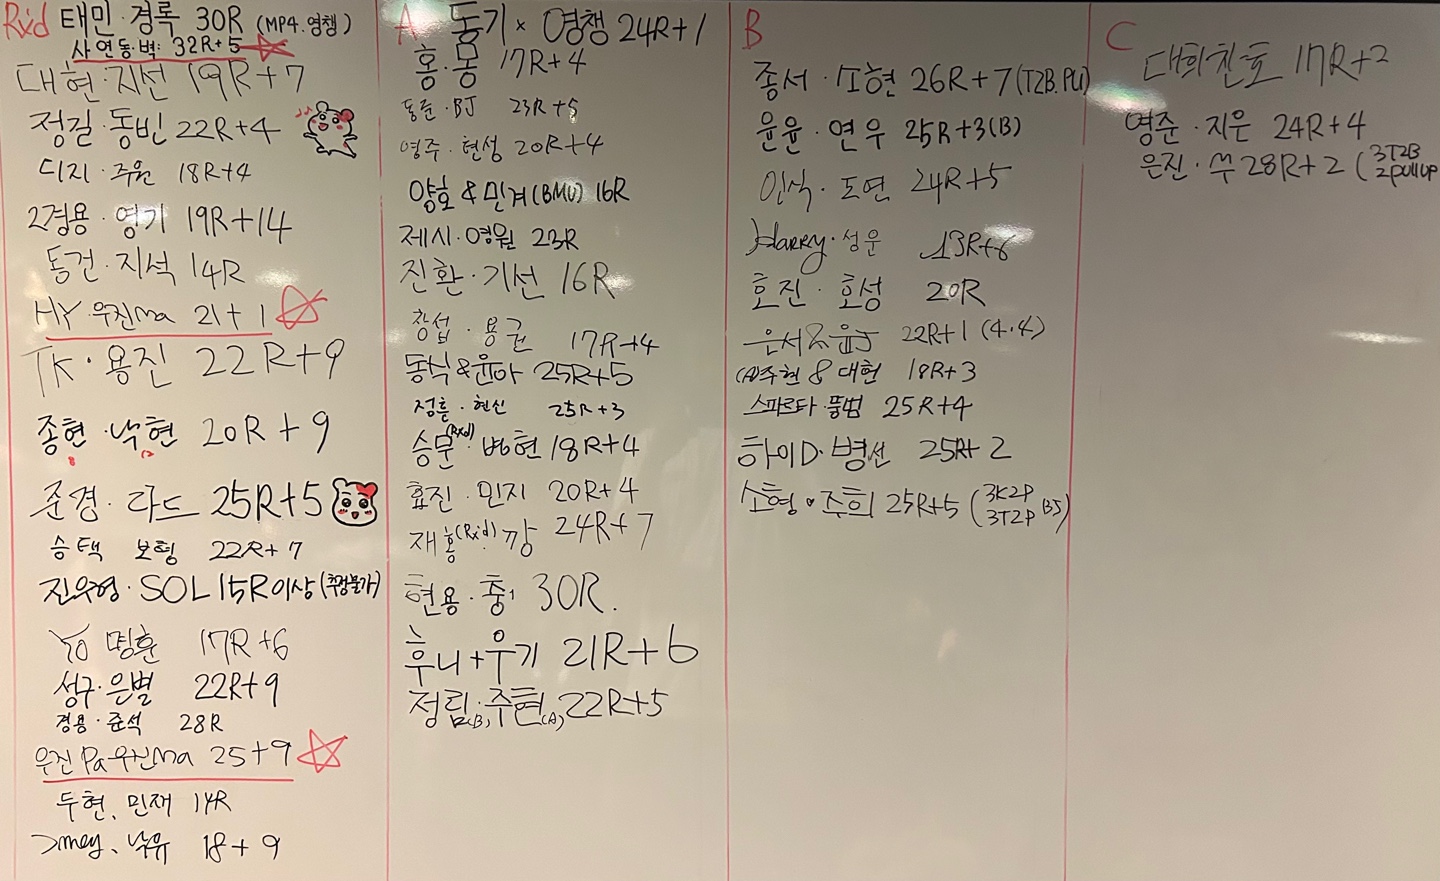 Rx'd 태민·경록 30R (MP4.영챔)
사연동·벽: 32R+5
대현·지선 19R+7
정길·동빈 22R+4
디지·주원 18R+4
2경용·영기 19R+14
동건·지석 14R
HY·우진Ma 21+1
TK·용진 22R+9
종현·낙현 20R+9
준경·다드 25R+5
승택 보형 22R+7
진우형·SOL 15R이상(측정불가)
YO 명훈 17R+6
성구·은별 22R+9
경용·준석 28R
우진Pa·우진Ma 25+9
두현、민재 14R
낙유 18+9
A 동기×영챔 24R+1
홍·몽 17R+4
동준·BJ 23R+5
영주·현성 20R+4
양호&민계(BMU) 16R
제시·영원 23R
진환·기선 16R
창섭·용권 17R+4
동식&윤아 25R+5
정훈·현신 25R+3
승문(Rxd)·병현 18R+4
효진·민지 20R+4
재홍(Rx'd)·깡 24R+7
현용·충1 30R.
후니+우기 21R+6
정림(B),주현(A),22R+5
B
종서·소현 26R+7(T2B.PU)
윤윤·연우 25R+3(B)
인식·도연 24R+5
Harry·성운 13R+6
호진·호성 20R
은서 22R+1 (4·4)
(A)주현&대현 18R+3
스파르타·뚱범 25R+4
하이D·병선 25R+2
소형·주희 25R+5 (3K2P 3T2P BJ)
C
대희찬호 17R+2
영준·지은 24R+4
은진·쑤 28R+2 (3T2B 2pullup